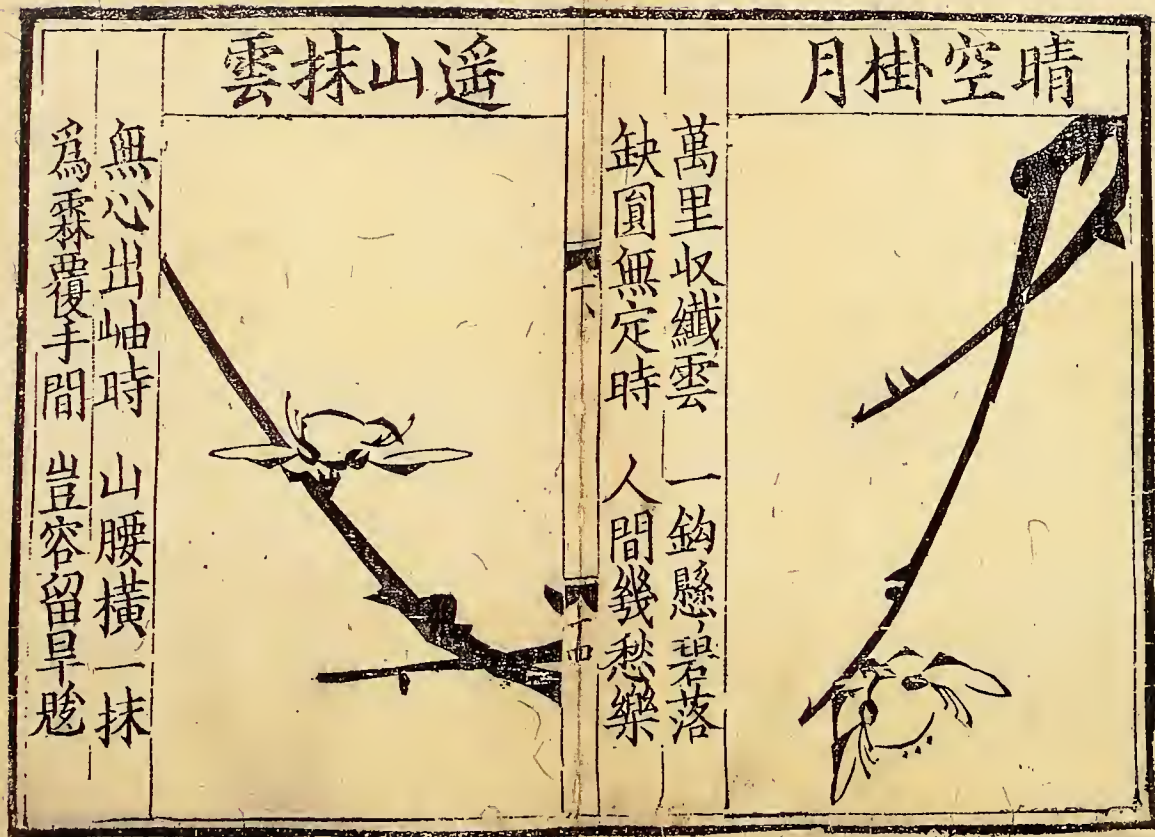 晴空掛月
萬里収纖雲　一鈎懸碧落
缺圓無定時　人間幾愁樂
下
十四
遥山抹雲
無心出岫時　山腰橫一抹
爲霖覆手間　豈容留旱魃